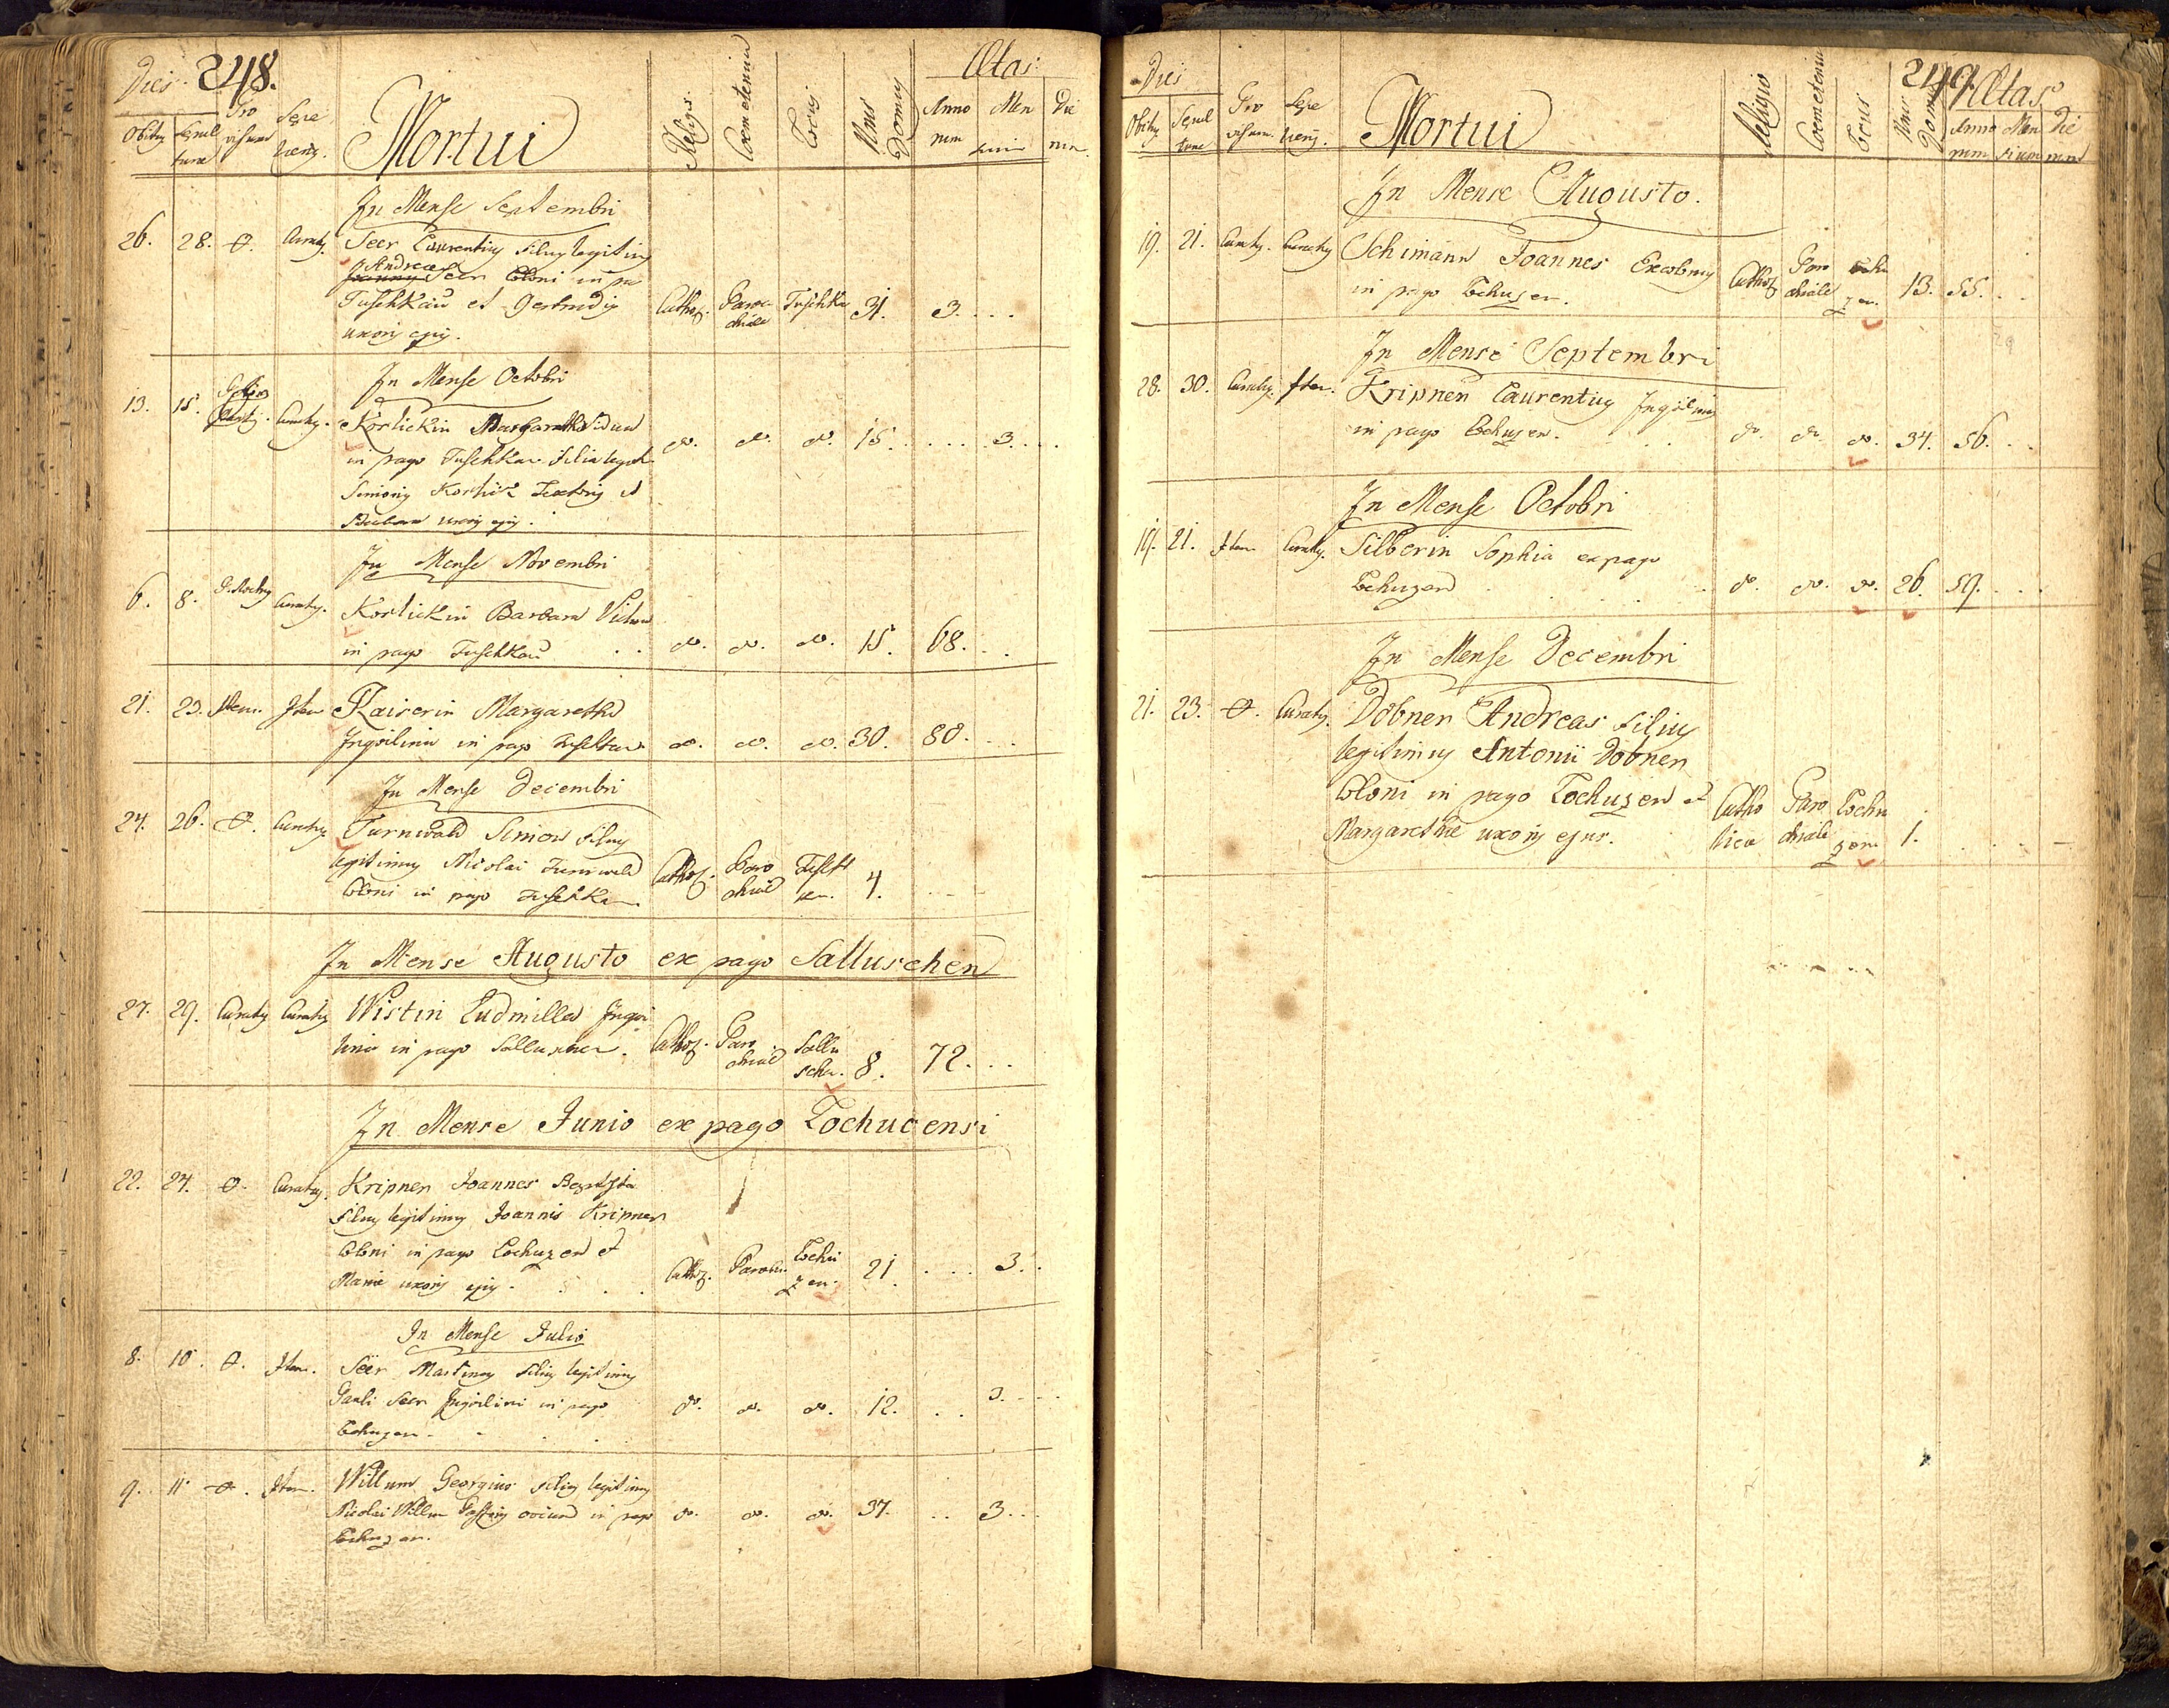 248.
Dies
Obitus Sepulturae Provisum Sepeliens
Mortui
Religio Coemeterium Locus Nrus Domus
Ætas
Annorum Mensium Dierum
In Mense Septembri
26. 28. O. Curatus Seer Laurentius Filius legitimus
Andreae
Seer Coloni in pa
Tuschkau et Gertrudis Cathol. Parochiale Tuschkau 31. 3.
uxoris ejus.
In Mense Octobri
13. 15. Curatus. Korlickin Margaretha
in pago Tuschkau Filia legit.
do. do. do. 15. 3.
Simonis Korlick Textoris et
Barbarae uxoris ejus.
In Mense Novembri
6. 8. Curatus. Korlickin Barbara Vidua
in pago Tuschkau do. do. do. 15. 68.
21. 23. Item. Item Kaiserin Margaretha
Inquilina in pago Tuschkau do. do. do. 30. 80.
In Mense Decembri
24. 26. O. Curatus Turnwald Simon Filius
legitimus Nicolai Turnwald Cathol. Parochiale Tuschkau. 4.
Coloni in pago Tuschkau.
In Mense Augusto ex pago Salluschen
27. 29. Curatus Curatus Wistin Ludmilla Inqui
lina in pago Salluschen. Cathol. Parochiale Salluschen. 8. 72.
In Mense Junio ex pago Lochucensi
22. 24. O. Curatus. Kripner Joannes Baptista
Filius legitimus Joannis Kripner
Coloni in pago Lochuzen et
Mariae uxoris ejus. Cathol. Paroch. Lochuzen. 21. 3.
In Mense Julio
8. 10. O. Item. Seer Martinus Filius legitimus
Pauli Seer Inquilini in pago do. do. do. 12. 3.
Lochuzen.
9. 11. O. Item. Willum Georgius Filius legitimus
Nicolai Willum Pastoris ovium in pago do. do. do. 37. 3.
Lochuzen.
249.
Dies
Obitus Sepulturae Provisum. Sepeliens.
Mortui
Religio Coemeterium Locus Nrus Domus
Ætas
Annorum Mensium Dierum
In Mense Augusto.
19. 21. Curatus. Curatus Schimann Joannes Excolonus
in pago Lochuzen. Cathol. Parochiale Lochuzen. 13. 55.
In Mense Septembri
28. 30. Curatus. Item. Kripner Laurentius Inquilinus
in pago Lochuzen. do. do. do. 34. 56.
In Mense Octobri
19. 21. Item Curatus. Silberin Sophia ex pago
Lochuzen do. do. do. 26. 59.
In Mense Decembri
21. 23. O. Curatus. Dobner Andreas Filius
legitimus Antonii Dobner
Coloni in pago Lochuzen et
Margarethae uxoris ejus. Catholica Parochiale Lochuzen 1.